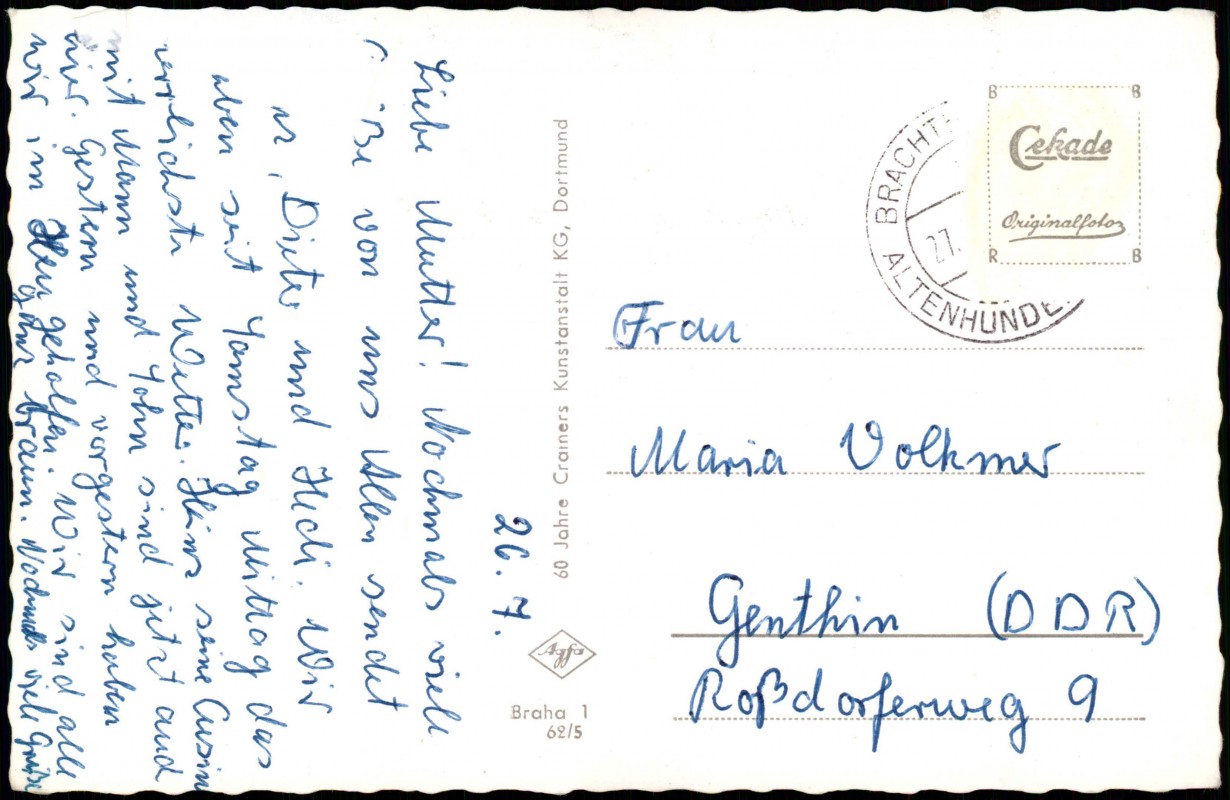 26. 7.
Liebe Mutter! Nochmals viele
Be von uns Allen sendet
Dieter und Hedi. Wir
aben seit Samstag Mittag das
errlichste Wetter. Heinz seine Cusine
mit Mann und Sohn sind jetzt auch
hier. Gestern und vorgestern haben
wir im Heu geholfen. Wir sind alle
ganz braun. Nochmals viele Grüße
60 Jahre Crainers Kunstanstalt KG, Dortmund
Agfa
Braha 1
62/5
BRACHT
ALTENHUNDE
27.
B B
Cekade
Originalfoto
R B
Frau
Maria Volkmer
Genthin (DDR)
Roßdorferweg 9